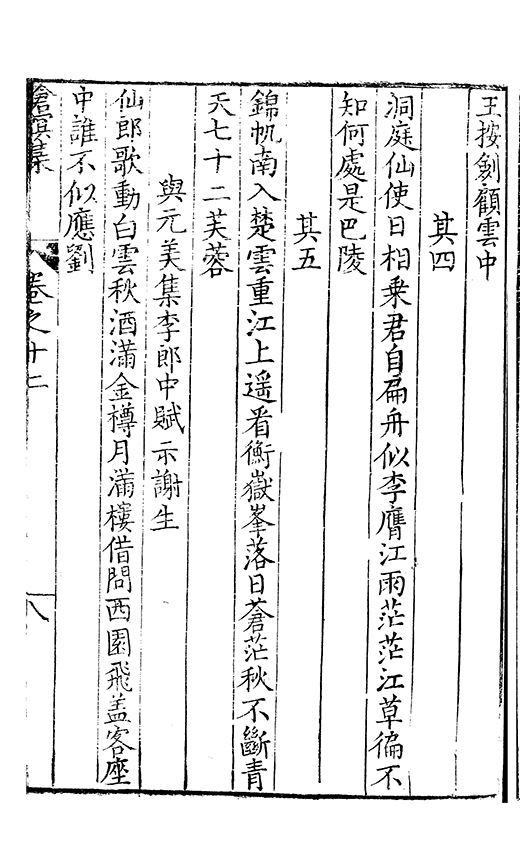 王按劍顧雲中
其四
洞庭仙使日相乗君自扁舟似李膺江雨茫茫江草徧不
知何處是巴陵
其五
錦帆南入楚雲重江上遥看衡嶽峯落日蒼茫秋不斷青
天七十二芙蓉
與元美集李郎中賦示謝生
仙郎歌動白雲秋酒滿金樽月滿樓借問西園飛盖客座
中誰不似應劉
滄溟集
卷之十二
八